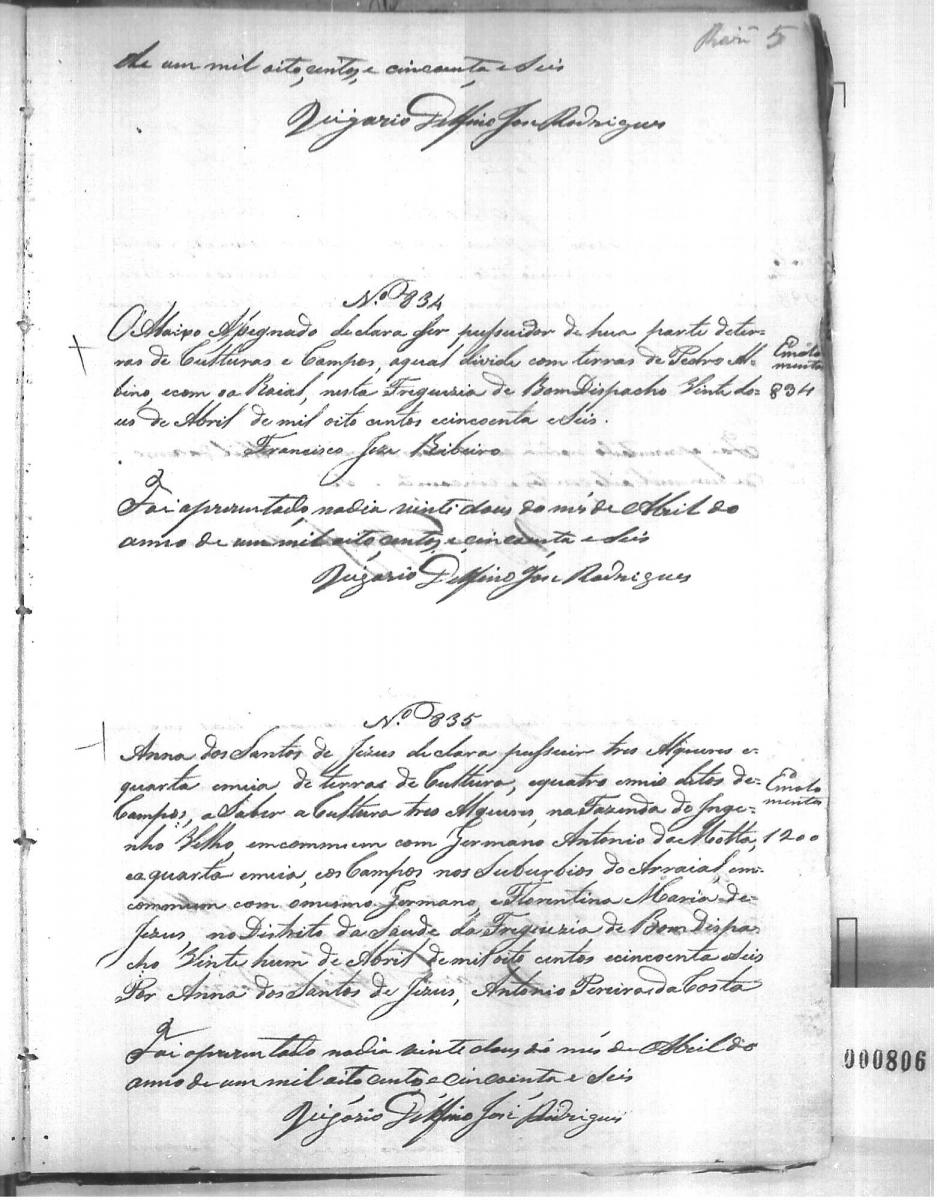 5
de um mil oito centos e cincoenta e seis
Vigario Delfino José Rodrigues
N.º 834
O Abaixo Asignado declara ser pussuidor de hua parte deter-
ras de Culturas e Campos, aqual divide com terras de Pedro Al-
bino, ecom oa Raial, nesta Freguezia de Bom Dispacho Vinte do-
us de Abril de mil oito centos ecincoenta e Seis.
Francisco Joze Ribeiro
Emolu
mentos
834
Foi aprezentado nodia vinte dous do mês de Abril do
anno de um mil oito centos e cincoenta e seis
Vigario Delfino José Rodrigues
N.º 835
Anna dos Santos de Jezus declara pussuir tres Alqueres e-
quarta emeia de terras de Cultura, equatro emio ditos de-
Campos, a Saber a Cultura tres Alqueres, na Fazenda do Inge-
nho Velho, emcommum com Jermano Antonio da Motta,
ea quarta emeia, eos Campos nos Suburbios do Arraial, em-
commum com omesmo Germano, e Florentina Maria de-
Jezus, no Distrito da Saude da Freguezia de Bom Dispa-
cho Vinte hum de Abril de mil oito centos ecincoenta e Seis
Por Anna dos Santos de Jezus, Antonio Pereira da Costa
Emolu
mentos
1200
Foi aprezentado nodia vinte dous do mês de Abril do
anno de um mil oito cento e cincoenta e seis
Vigário Delfino José Rodrigues
000806